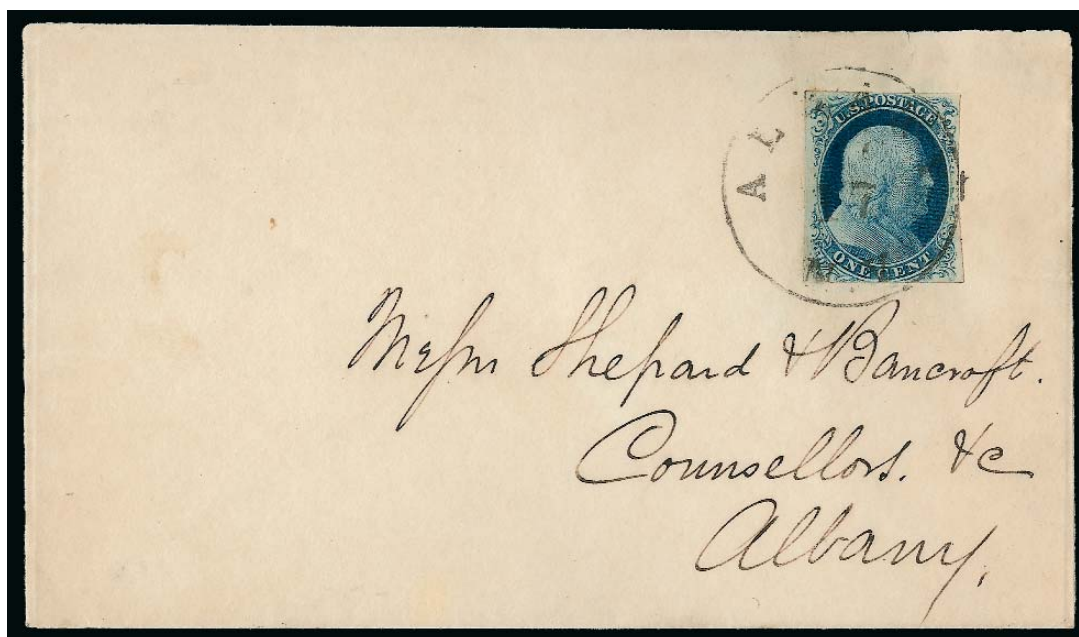 U.S. POSTAGE
7
ONE CENT
Messrs Shepard & Bancroft.
Counsellors. &c
Albany,